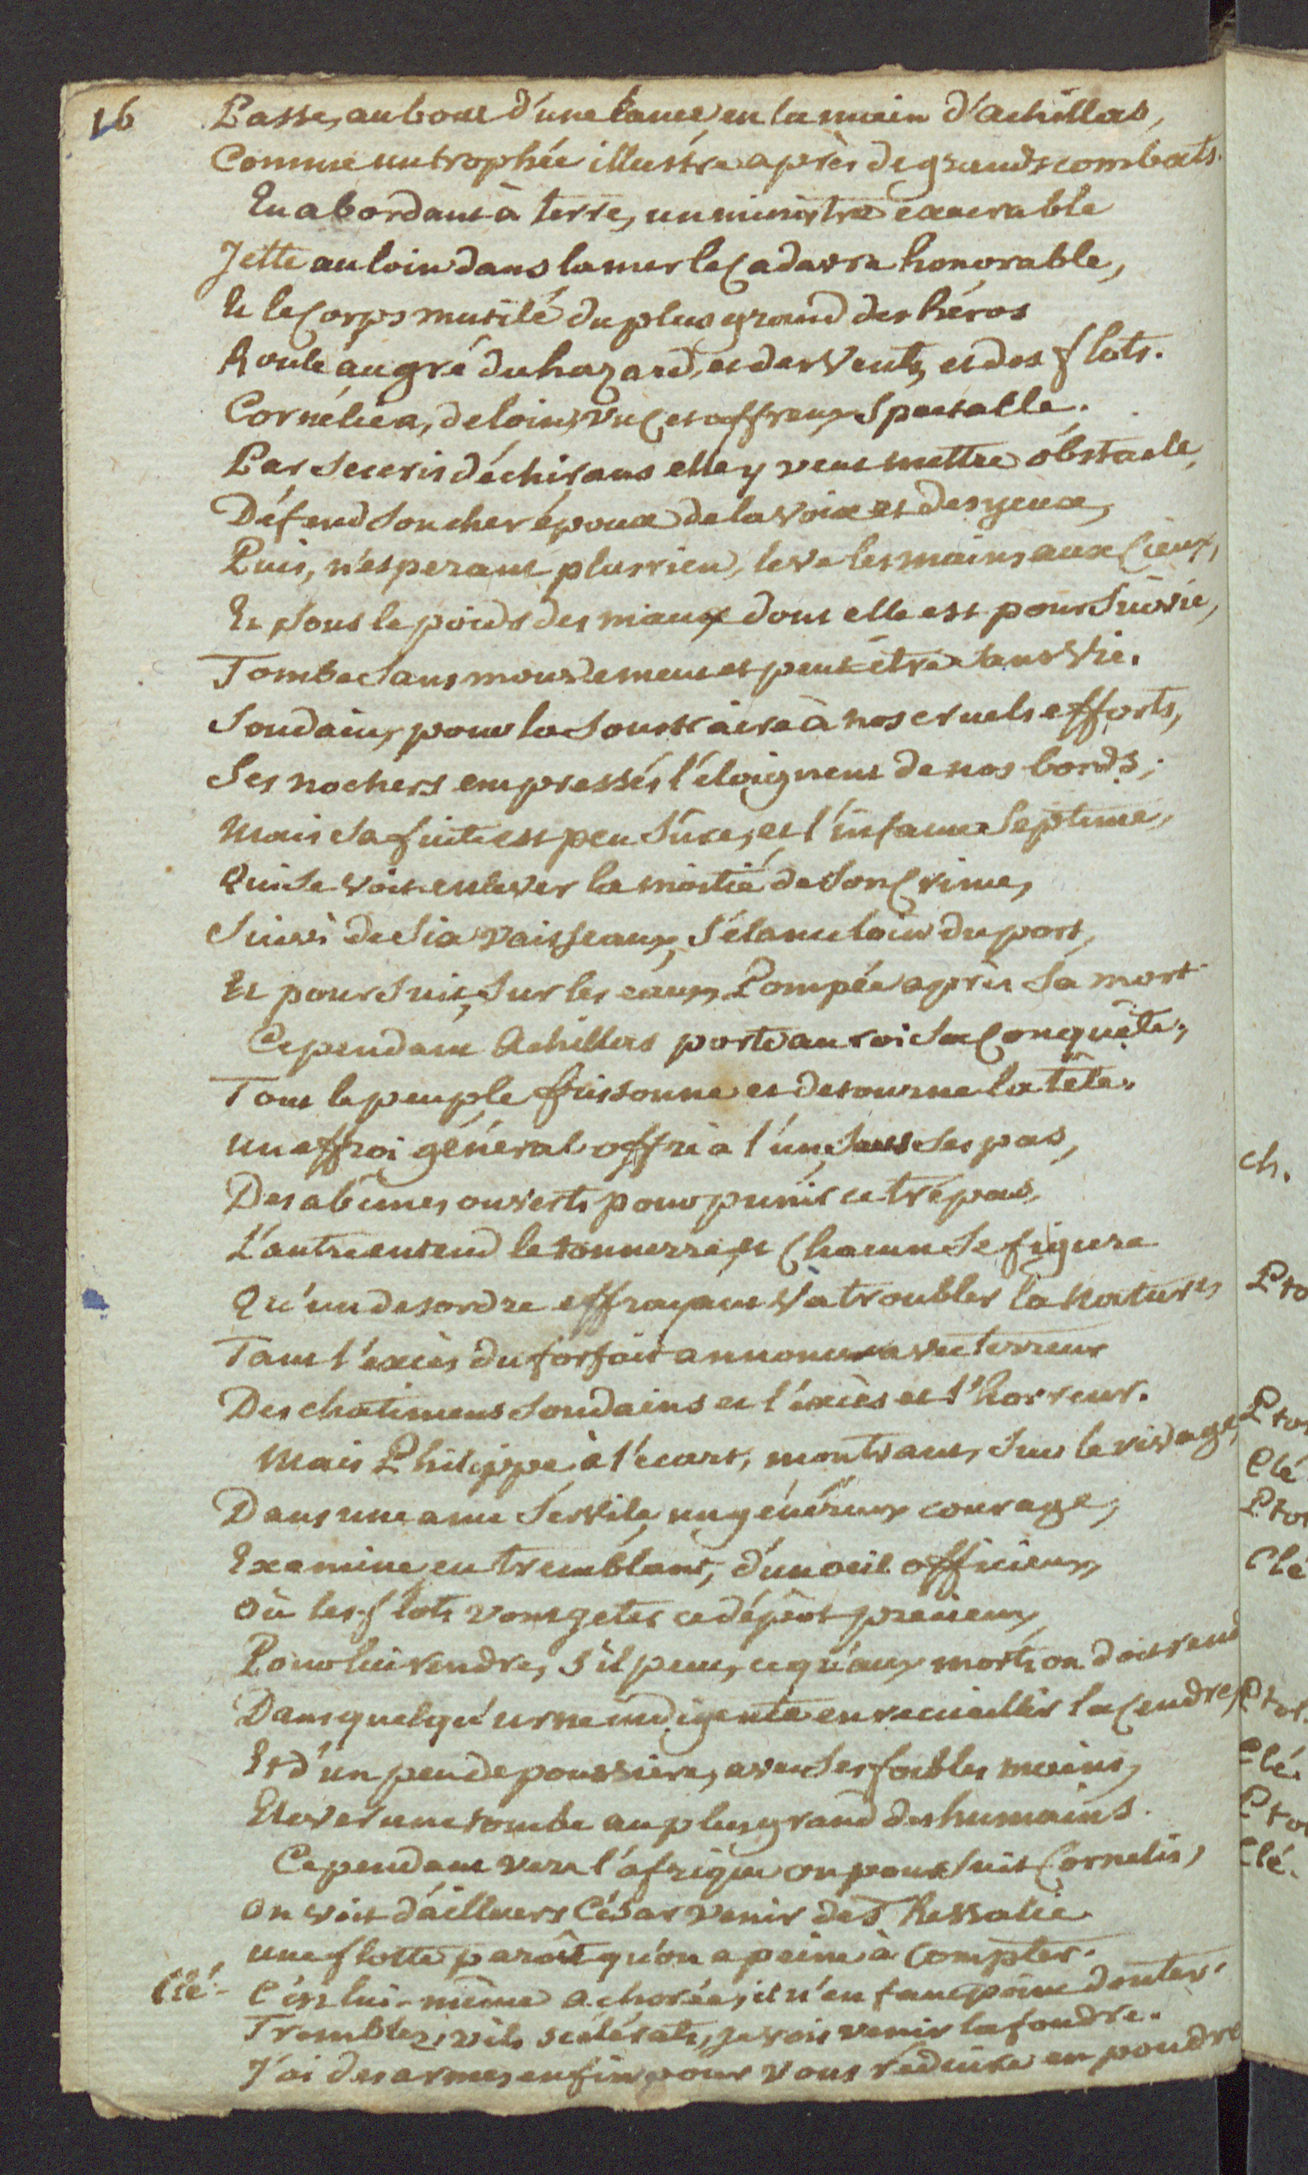 16 Passe, au bout d'une lance en la main d'achillas,
Comme un trophée illustre après de grands combats.
En abordant à terre, un ministre exaecrable
Jette au loin dans la mer le Cadavre honorable,
Et le Corps mutilé du plus grand des héros
Roule au gré du hazard, et des Vents, et des flots.
Cornélie a, de loin, vu Cet affreux Spectalle.
Par Ses cris déchirans elle y veut mettre obstacle,
Défend Son cher époux de la voix et des yeux,
Puis, n'esperant plus rien, leve les mains aux Cieux,
Et Sous le poids des maux dont elle est pourSuivie,
Tombe Sans mouvement et peut-être Sans Vie.
Soudain, pour la Soustraire à nos cruels efforts,
Ses nochers empressés l'éloignent de nos bords;
Mais Sa fuite est peu Sûre, et l'infame Septime,
Qui Se voit enlever la moitié de Son Crime,
Suivi de Six vaisseaux, S'élance loin du port,
Et pourSuit, Sur les eaux, Pompée après Sa mort
Cependant Achillas porte au roi Sa Conquête;
Tout le peuple frissonne et detourne la tête.
Un effroi général offre à l'un, Sous Ses pas,
Des abîmes ouverts pour punir ce trépas,
L'autre entend le tonnerre, et Chacun Se figure
Qu'un desordre effrayant Va troubler la nature,
Tant l'excès du forfait annonce avec terreur
Des chatimens Soudains et l'excès et l'horreur.
Mais Philippe à l'écart, montrant, Sur le visage,
Dans une ame Servile, un généreux courage,
Examine en tremblant, d'un oeil officieux,
Où les flots vont jeter ce dépôt precieux,
Pour lui rendre, s'il peut, ce qu'aux morts on doit rend
Dans quelqu'urne indigente en recueillir la Cendre,
Et d'un peu de poussiere, avec Ses foibles mains,
Elever une tombe au plus grand des humains.
Cependant vers l'afrique on pourSuit Cornelie,
On voit d'ailluers César venir de Thessalie
une flotte paroît qu'on a peine à Compter.
Clé- C'est lui-même achorée, il n'en faut point douter.
Tremblez, vils scélérats, je vois venir la foudre.
J'ai des armes enfin pour vous réduire en poudre
ch.
Pto
Ptol
Clé
Ptol
Clé
Ptol.
Clé.
Ptol
Clé.